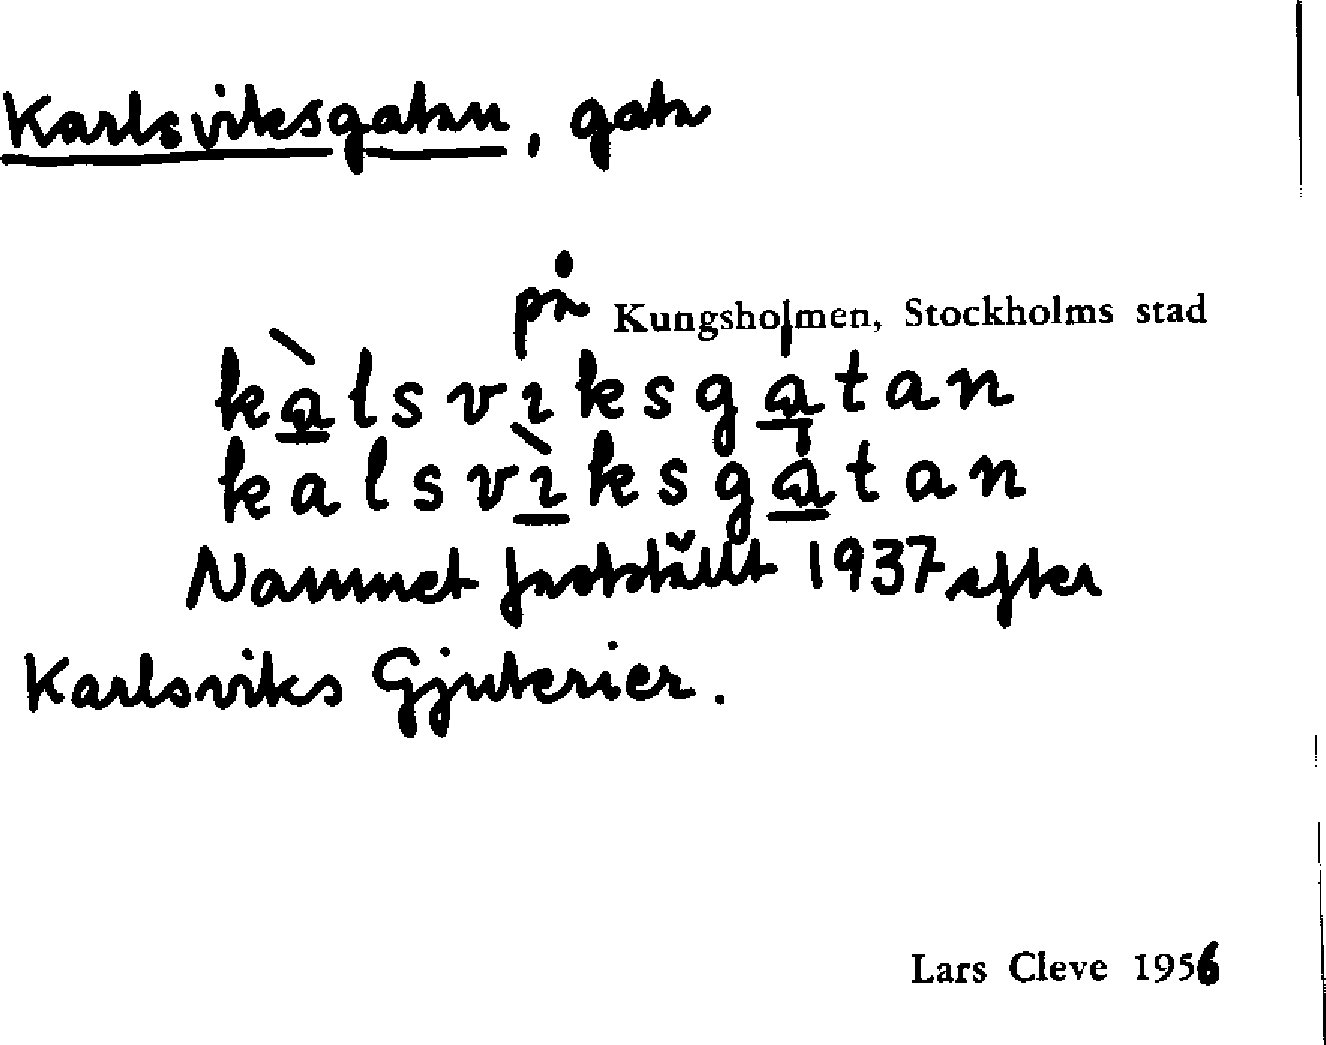 Karlsviksgatan, gata
på Kungsholmen, Stockholms stad
kàlsviksgatan
kalsvìksgatan
Namnet fastställt 1937 efter
Karlsviks Gjuterier.
Lars Cleve 1956